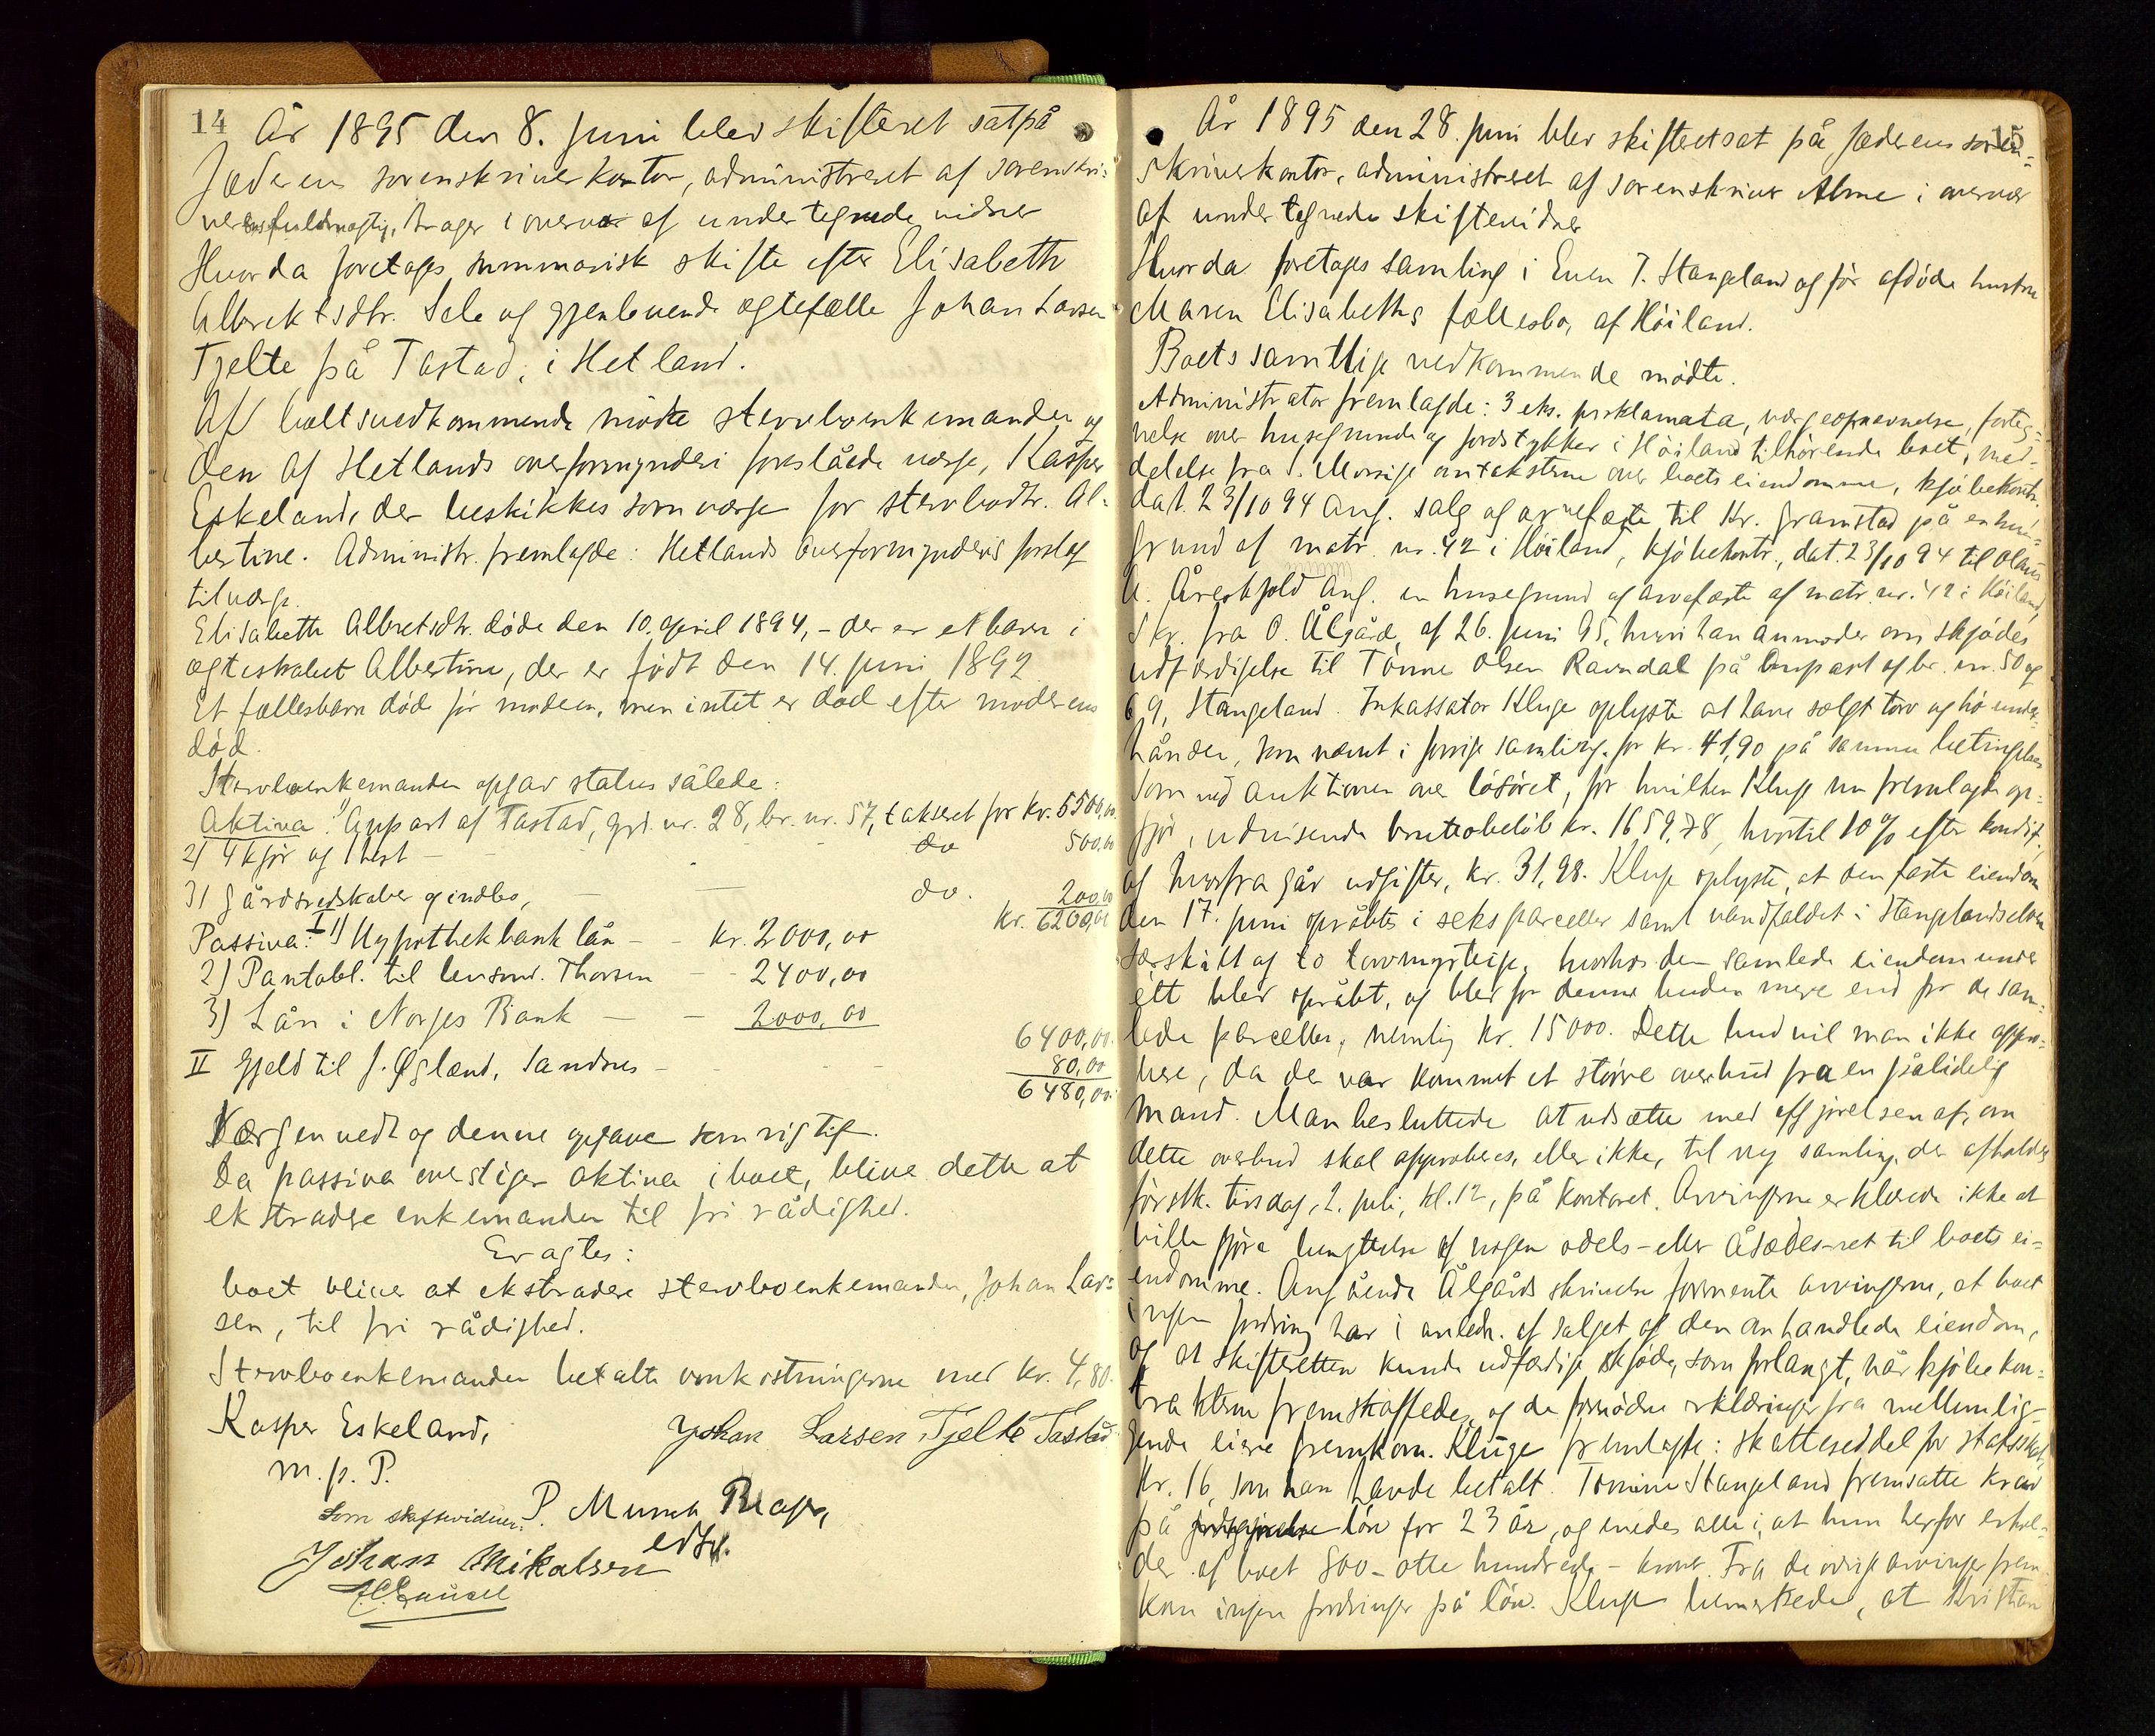 14
År 1895 den 8. juni blev skifteret sat på
Jæderens sorenskriverkontor, administreret af sorenskri-
verens fuldmægtig, Brager i overvær af undertegnede vidner
Hvorda foretages summarisk skifte efter Elisabeth
Albrektsdtr. Sele og gjenlevende ægtefælle Johan Larsen
Tjelte på Tastad, i Hetland.
Af boets vedkommende mødte stervboenkemanden og
den af Hetlands overformynderi foreslåede værge, Kasper
Eskeland, der beskikkes som værge for stervbodtr. Al-
bertine. Administr. fremlagde: Hetlands overformynderis forslag
til værge.
Elisabeth Albretsdtr. døde den 10. april 1894, - der er et barn i
ægteskabet Albertine, der er født den 14. juni 1892
Et fællesbarn døde før moderen, men intet er død efter moderens
død.
Stervboenkemanden opgav status således:
Aktiva: 1) Anpart af Tastad, grd. nr. 28, br. nr. 57, takseret for kr. 5500,00
2) 4 kjør og 1 hest - do 500,00
3) Gårdsredskaber og indbo, - do. 200,00
kr. 6200,00
Passiva: I 1) Hypothekbank lån - - kr. 2000,00
2) Pantobl. til lensmd. Thorsen - - 2400,00
3) Lån i Norges Bank - - 2000,00
6400,00
II Gjeld til J. Øgland, Sandnes - 80,00
6480,00
Værgen vedtog denne opgave som rigtig.
Da passiva overstiger aktiva i boet, blive dette at
ekstradere enkemanden til fri rådighed.
Eragtes:
boet bliver at ekstradere stervboenkemanden, Johan Lar-
sen, til fri rådighed.
Stervboenkemanden betalte omkostningerne med kr. 4,80.
Kasper Eskeland,
m. p. P.
Johan Larsen Tjelte Tastad
Som skiftevidner: P. Munch Brager,
edsv.
Johan Mikalsen
15
År 1895 den 28. juni blev skifteret sat på Jæderens soren-
skriverkontor, administreret af sorenskriver Alme i overvær
af undertegnede skiftevidner
Hvorda foretages samling i Even T. Stangeland og før afdøde hustru
Maren Elisabeths fællesbo, af Höiland.
Boets samtlige vedkommende mödte.
Administrator fremlagde: 3 eks. proklamata, værgeopnævnelse, forteg-
nelse over husegrunde og jordstykker i Höiland tilhörende boet, med-
delelse fra S. Monsige om takstene over boets eiendomme, kjöbekontr.
dat. 23/10 94 ang. salg og arvefæste til Kr. Gramstad på en hus-
grund af matr. nr. 42 i Höiland, kjöbekontr., dat. 23/10 94 til Olaus
A. Årrestad ang. en husegrund af arvefæste af matr. nr. 42 i Höiland,
Skr. fra O. Ålgård, af 26. juni 95, hvori han anmoder om skjödes
udfærdigelse til Tönnes Olsen Ravndal på anpart af br. nr. 50 og
69, Stangeland. Inkassator Kluge oplyste at have solgt torv og hö under-
hånden, som nævnt i forrige samling, for kr. 41,90 på samme betingelser
som ved auktionen over lösöret, for hvilken Kluge nu fremlagde op-
gjör, udvisende bruttobelöb kr. 1659,78, hvortil 10% efter kondit.,
og hvorfra går udgifter, kr. 31,98. Kluge oplyste, at den faste eiendom
den 17. juni opråbtes i seks parceller samt vandfaldet i Stangelandselven
særskilt og to torvmyrteige, hvorhos den samlede eiendom under
ett blev opråbt, og blev for denne buden mere end for de sam-
lede parceller, nemlig kr. 15000. Dette bud vil man ikke appro-
bere, da der var kommet et större overbud fra en pålidelig
mand. Man besluttede at udsætte med afgjörelsen af, om
dette overbud skal approberes, eller ikke, til ny samling, der afholdes
förstk. tirsdag, 2. juli, kl. 12, på kontoret. Arvingerne erklærede ikke at
ville gjöre benyttelse af nogen odels- eller åsædesret til boets ei-
endomme. Angående Ålgårds skrivelse formente arvingerne, at boet
ingen fordring har i anledn. af salget af den omhandlede eiendom,
og at skifteretten kunde udfærdige skjöde, som forlangt, når kjöbekon-
trakterne fremskaffedes, og de fornödne erklæringer fra mellemlig-
gende eiere fremkom. Kluge fremlagde: skatteseddel for statsskat,
kr. 16, som han havde betalt. Tomine Stangeland fremsatte krav
på lön for 23 år, og enedes alle i, at hun herfor erhol-
der af boet 800 - otte hundrede - kroner. Fra de övrige arvinger frem-
kom ingen fordringer på lön. Kluge bemærkede, at Kristian